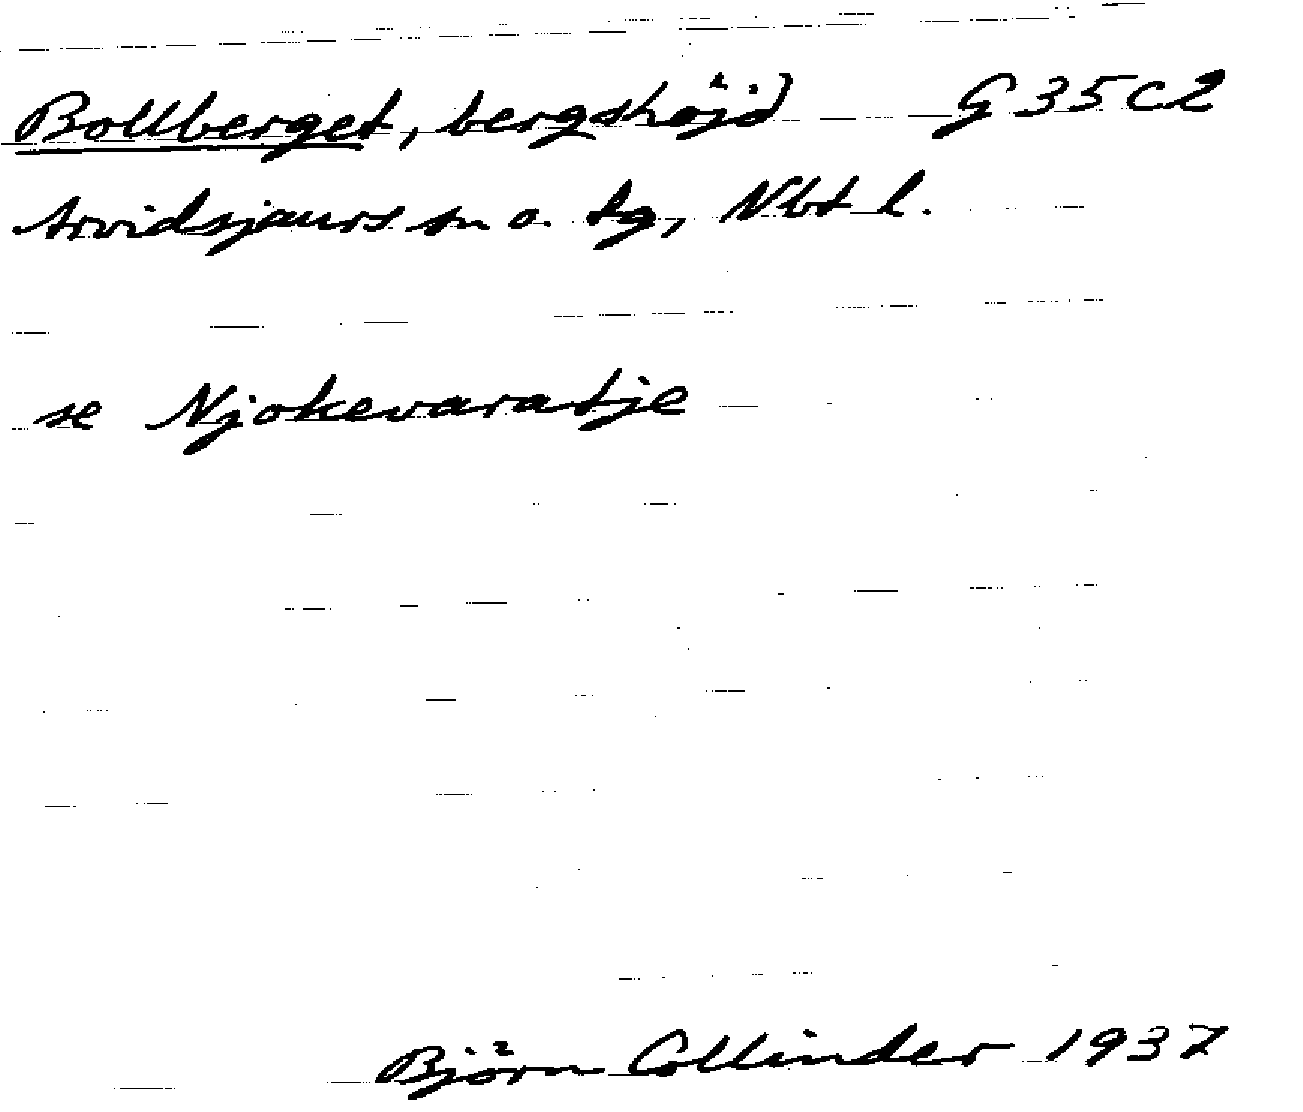 Bollberget, bergshöjd G 35 C 2
Arvidsjaurs sn o. tg, Nbt l.
se Njokevaratje
Björn Collinder 1937